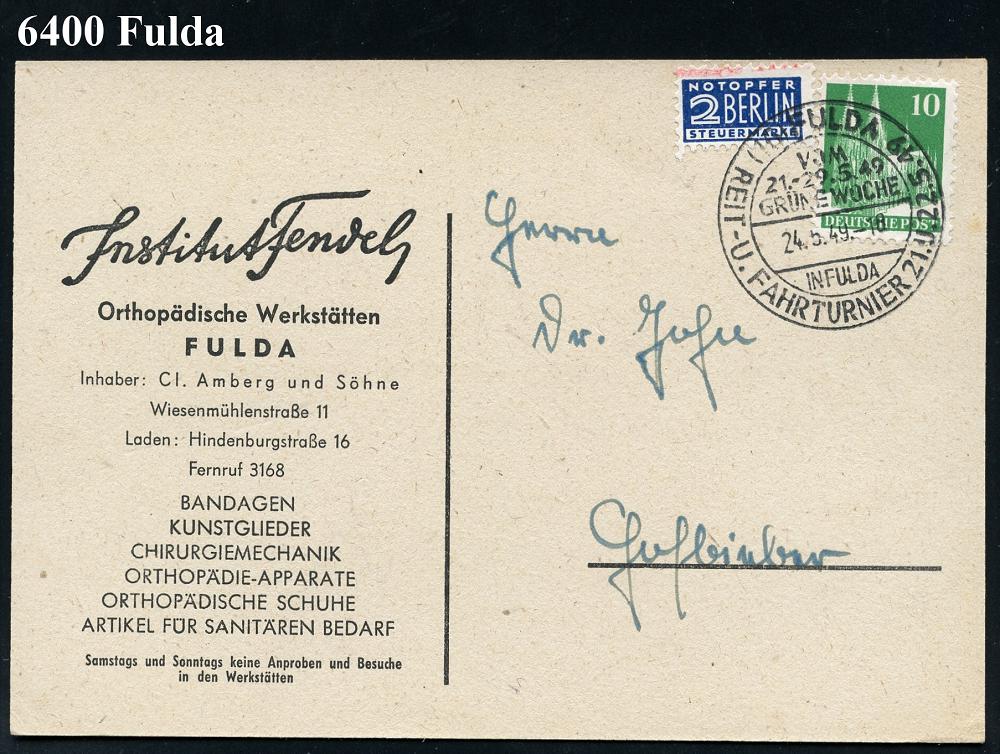 6400 Fulda
NOTOPFER
2 BERLIN
STEUERMARKE
10
DEUTSCHE POST
FULDA
VOM
21.-29.5.49
GRÜNE WOCHE
24.5.49.
IN FULDA
REIT-U. FAHRTURNIER 21.U.22.5.49
Institut Fendel
Orthopädische Werkstätten
FULDA
Inhaber: Cl. Amberg und Söhne
Wiesenmühlenstraße 11
Laden: Hindenburgstraße 16
Fernruf 3168
BANDAGEN
KUNSTGLIEDER
CHIRURGIEMECHANIK
ORTHOPÄDIE-APPARATE
ORTHOPÄDISCHE SCHUHE
ARTIKEL FÜR SANITÄREN BEDARF
Samstags und Sonntags keine Anproben und Besuche
in den Werkstätten
Herrn
Dr.
Hofbieber